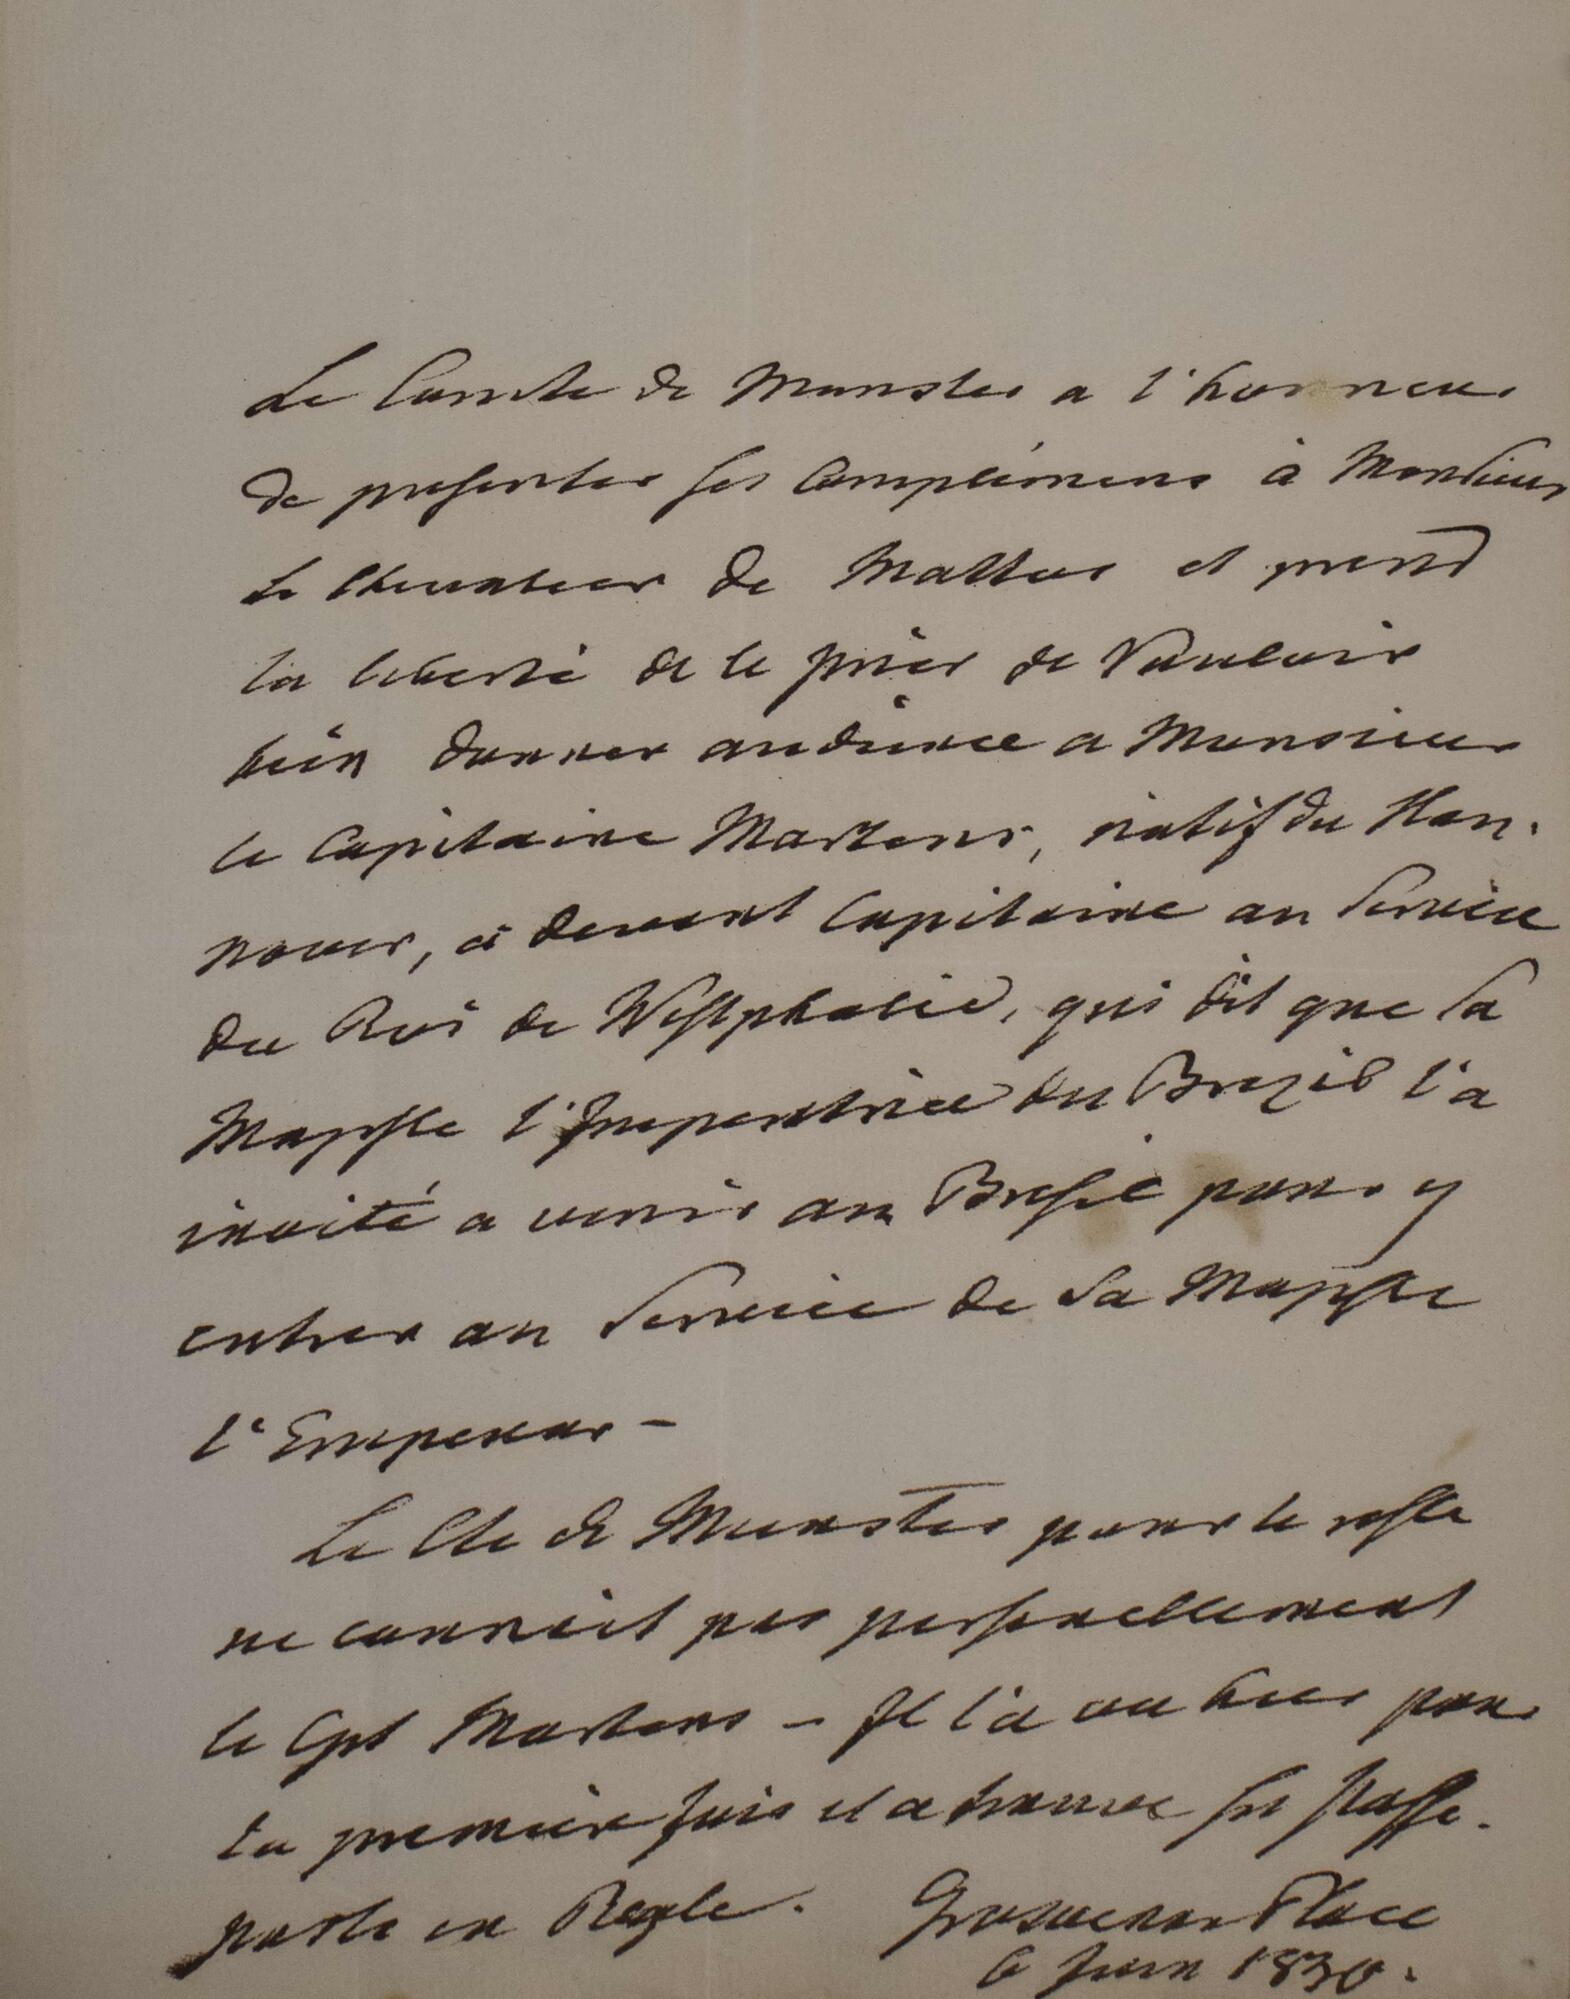 Le Comte de Munster a l'honneur
de presenter ses Complimens à Monsieur
Le Chevalier de Mattos et prend
la liberté de le prier de Vouloir
bien donner audience a Monsieur
le Capitaine Martens, natif du Han-
nover, ci devant Capitaine au Service
du Roi de Westphalie, qui dit que Sa
Majeste l'Imperatrice du Brezil l'a
invité a venir au Bresil pour y
entrer au Service de Sa Majeste
l'Empereur -
Le Cte de Munster pour le reste
ne connoit pas personellement
le Cpt Martens - Il l'a vu hier pour
la premiere fois et a trouvé ses Passe-
ports en Regle. Grosvenor Place
6 Juin 1830.